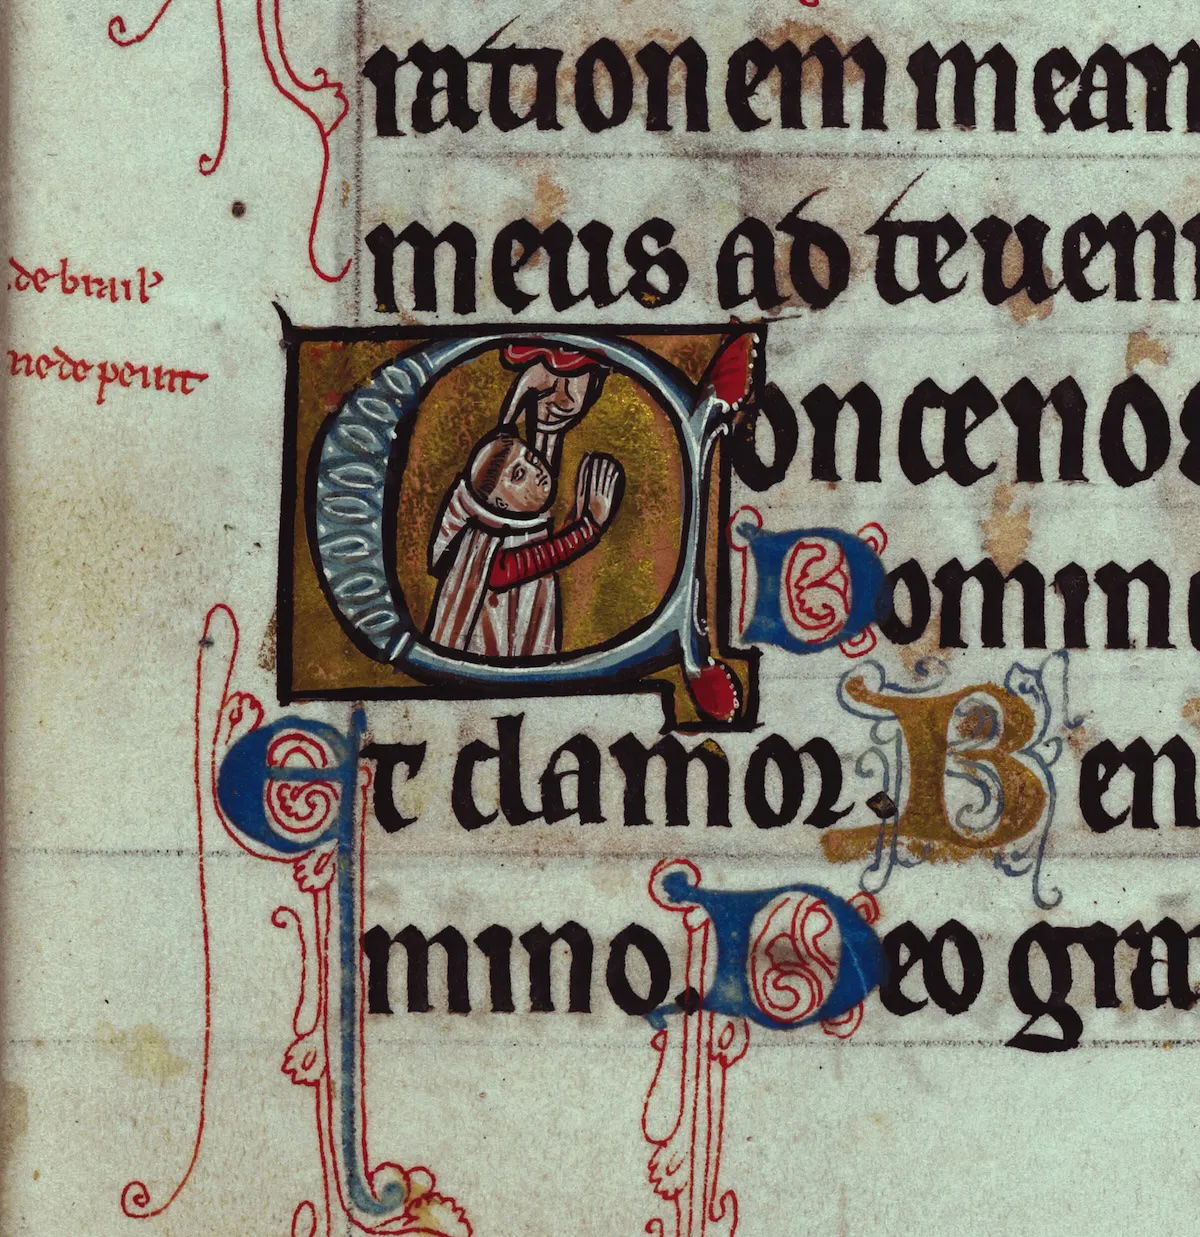 rationem mean
meus ad te ueni
de brail'
ne de peint
Conce nos
Domin
Et clamor. Ben
mino. Deo gra